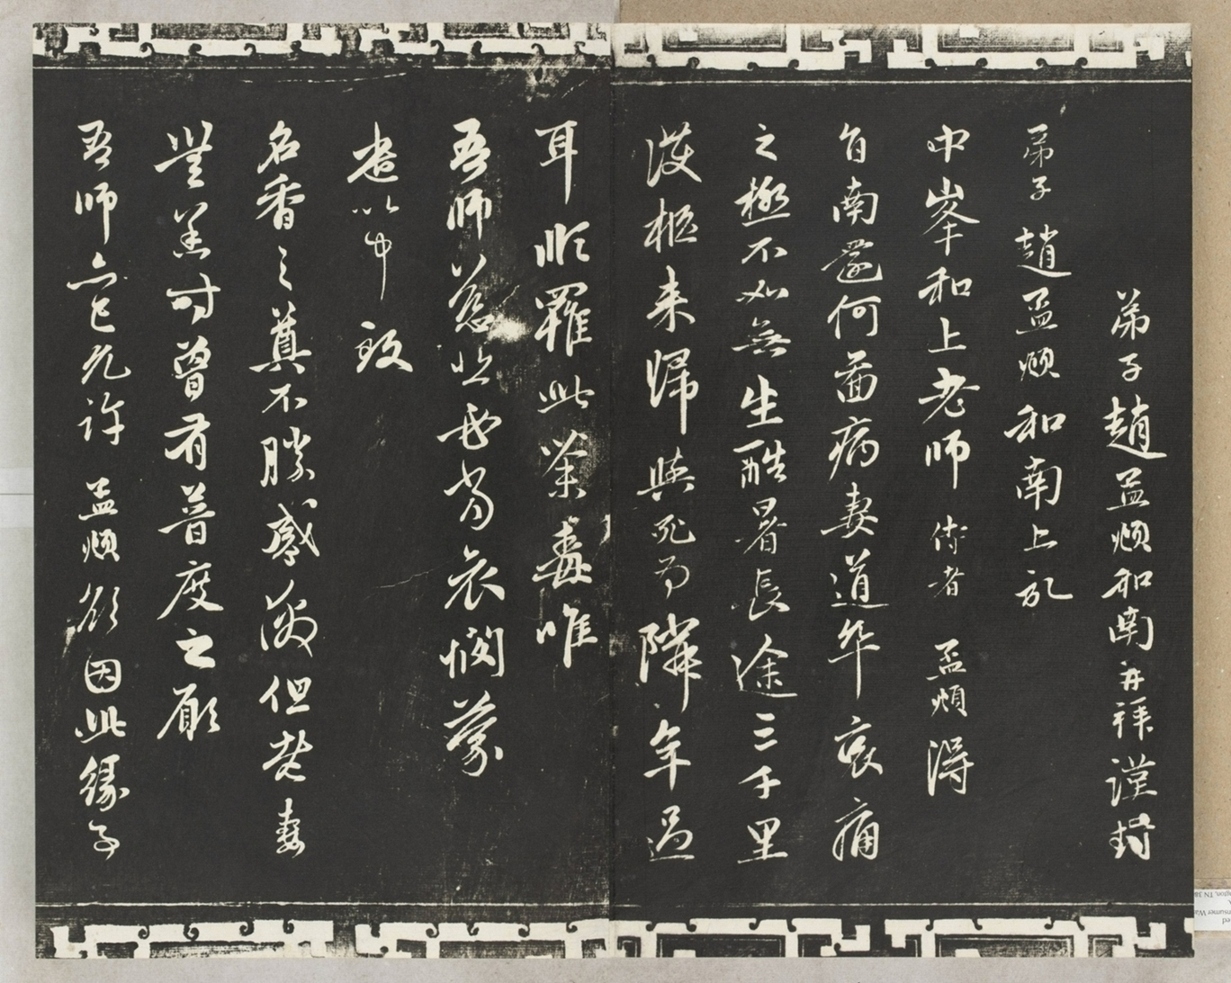 弟子趙孟頫和南再拜謹封
弟子趙孟頫和南上記
中峯和上老師侍者孟頫得
旨南還何啚病妻道卒哀痛
之極不如無生酷暑長途三千里
護柩来歸與死為隣年過
耳順罹此荼毒唯
吾師慈悲必當哀憫蒙
遣以中致
名香之奠不勝感激但老妻
無恙時曾有普度之願
吾師亦已允許孟頫欲因此緣事